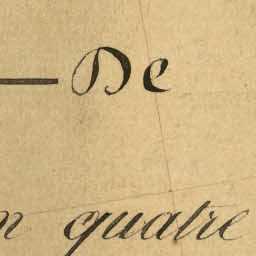 — De
n quatre